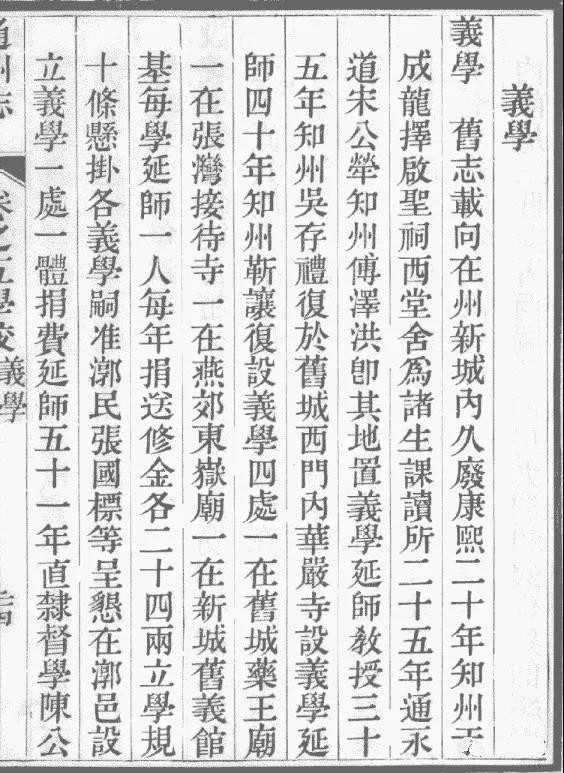 義學
義學 舊志載向在州新城內久廢康熙二十年知州于
成龍擇啟聖祠西堂舍為諸生課讀所二十五年通永
道宋公犖知州傅澤洪卽其地置義學延師教授三十
五年知州吳存禮復於舊城西門內華嚴寺設義學延
師四十年知州靳讓復設義學四處一在舊城藥王廟
一在張灣接待寺一在燕郊東嶽廟一在新城舊義館
基每學延師一人每年捐送修金各二十四兩立學規
十條懸掛各義學嗣准漷民張國標等呈懇在漷邑設
立義學一處一體捐費延師五十一年直隸督學陳公
通州志 卷之五學校 義學